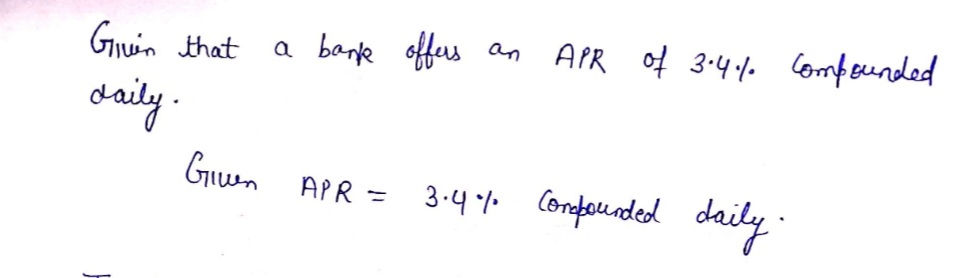 Given that a bank offers an APR of 3.4% Compounded
daily.
Given APR = 3.4% Compounded daily.